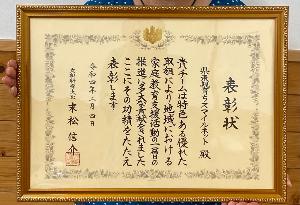 表彰状
殿
貴チームは特色ある優れた
取組により地域における
家庭教育支援活動の一層の
推進に多大な貢献をされました
ここにその功績をたたえ
表彰します
令和四年二月四日
文部科学大臣 末松信介